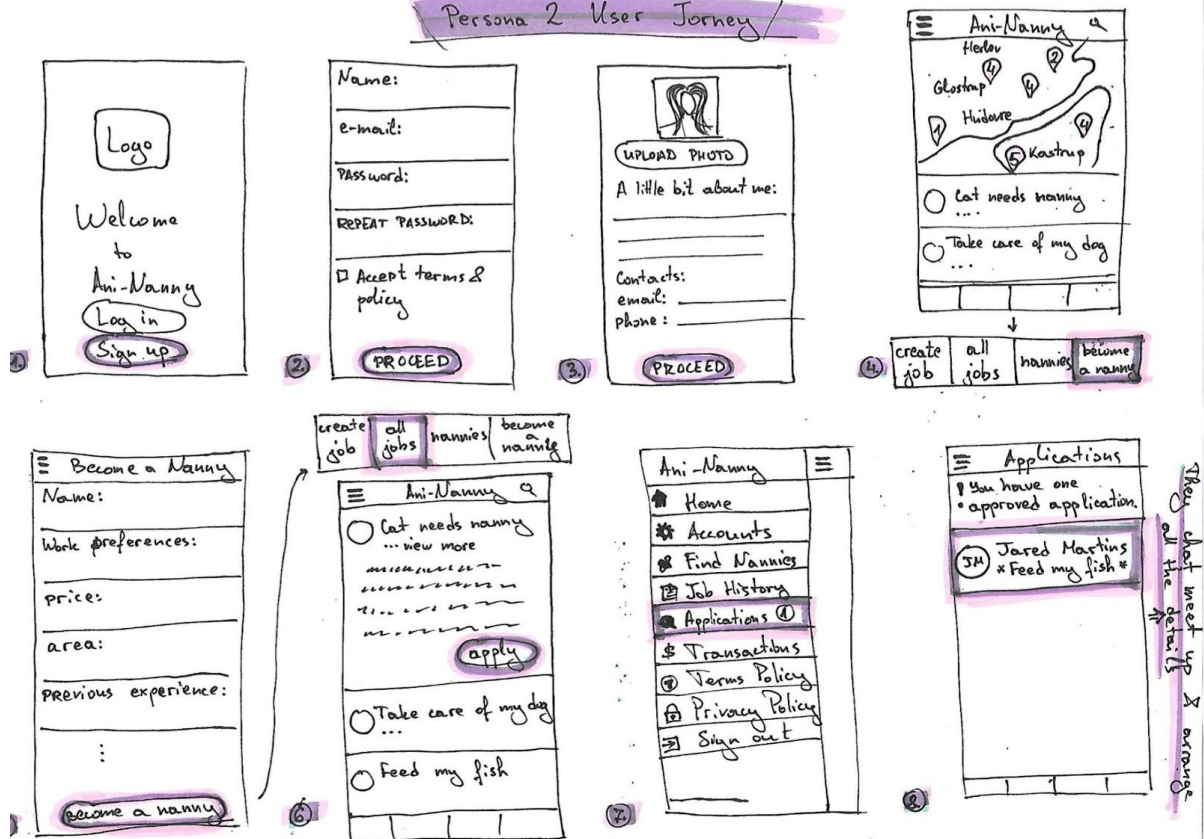 Persona 2 User Jorney
Logo
Welcome
to
Ani-Nanny
Log in
Sign up
1.
Name:
e-mail:
PASSword:
REPEAT PASSWORD:
Accept terms &
policy
PROCEED
2.
UPLOAD PHOTO
A little bit about me:
Contacts:
email:
phone:
PROCEED
3.
Ani-Nanny
Herlov
2
4
Glostrup
4
Hvidovre
1
4
5 Kastrup
Cat needs nanny
...
Take care of my dog
...
4.
create
job
all
jobs
nannies
become
a nanny
Become a Nanny
Name:
Work preferences:
price:
area:
previous experience:
Become a nanny
create
job
all
jobs
nannies
become
a
nanny
Ani-Nanny
Cat needs nanny
... view more
apply
Take care of my dog
...
Feed my fish
6
Ani-Nanny
Home
Accounts
Find Nannies
Job History
Applications 1
$ Transactions
? Terms Policy
Privacy Policy
Sign out
7.
Applications
! You have one
approved application.
JM
Jared Martins
*Feed my fish*
8
They chat meet up & arrange
all the details